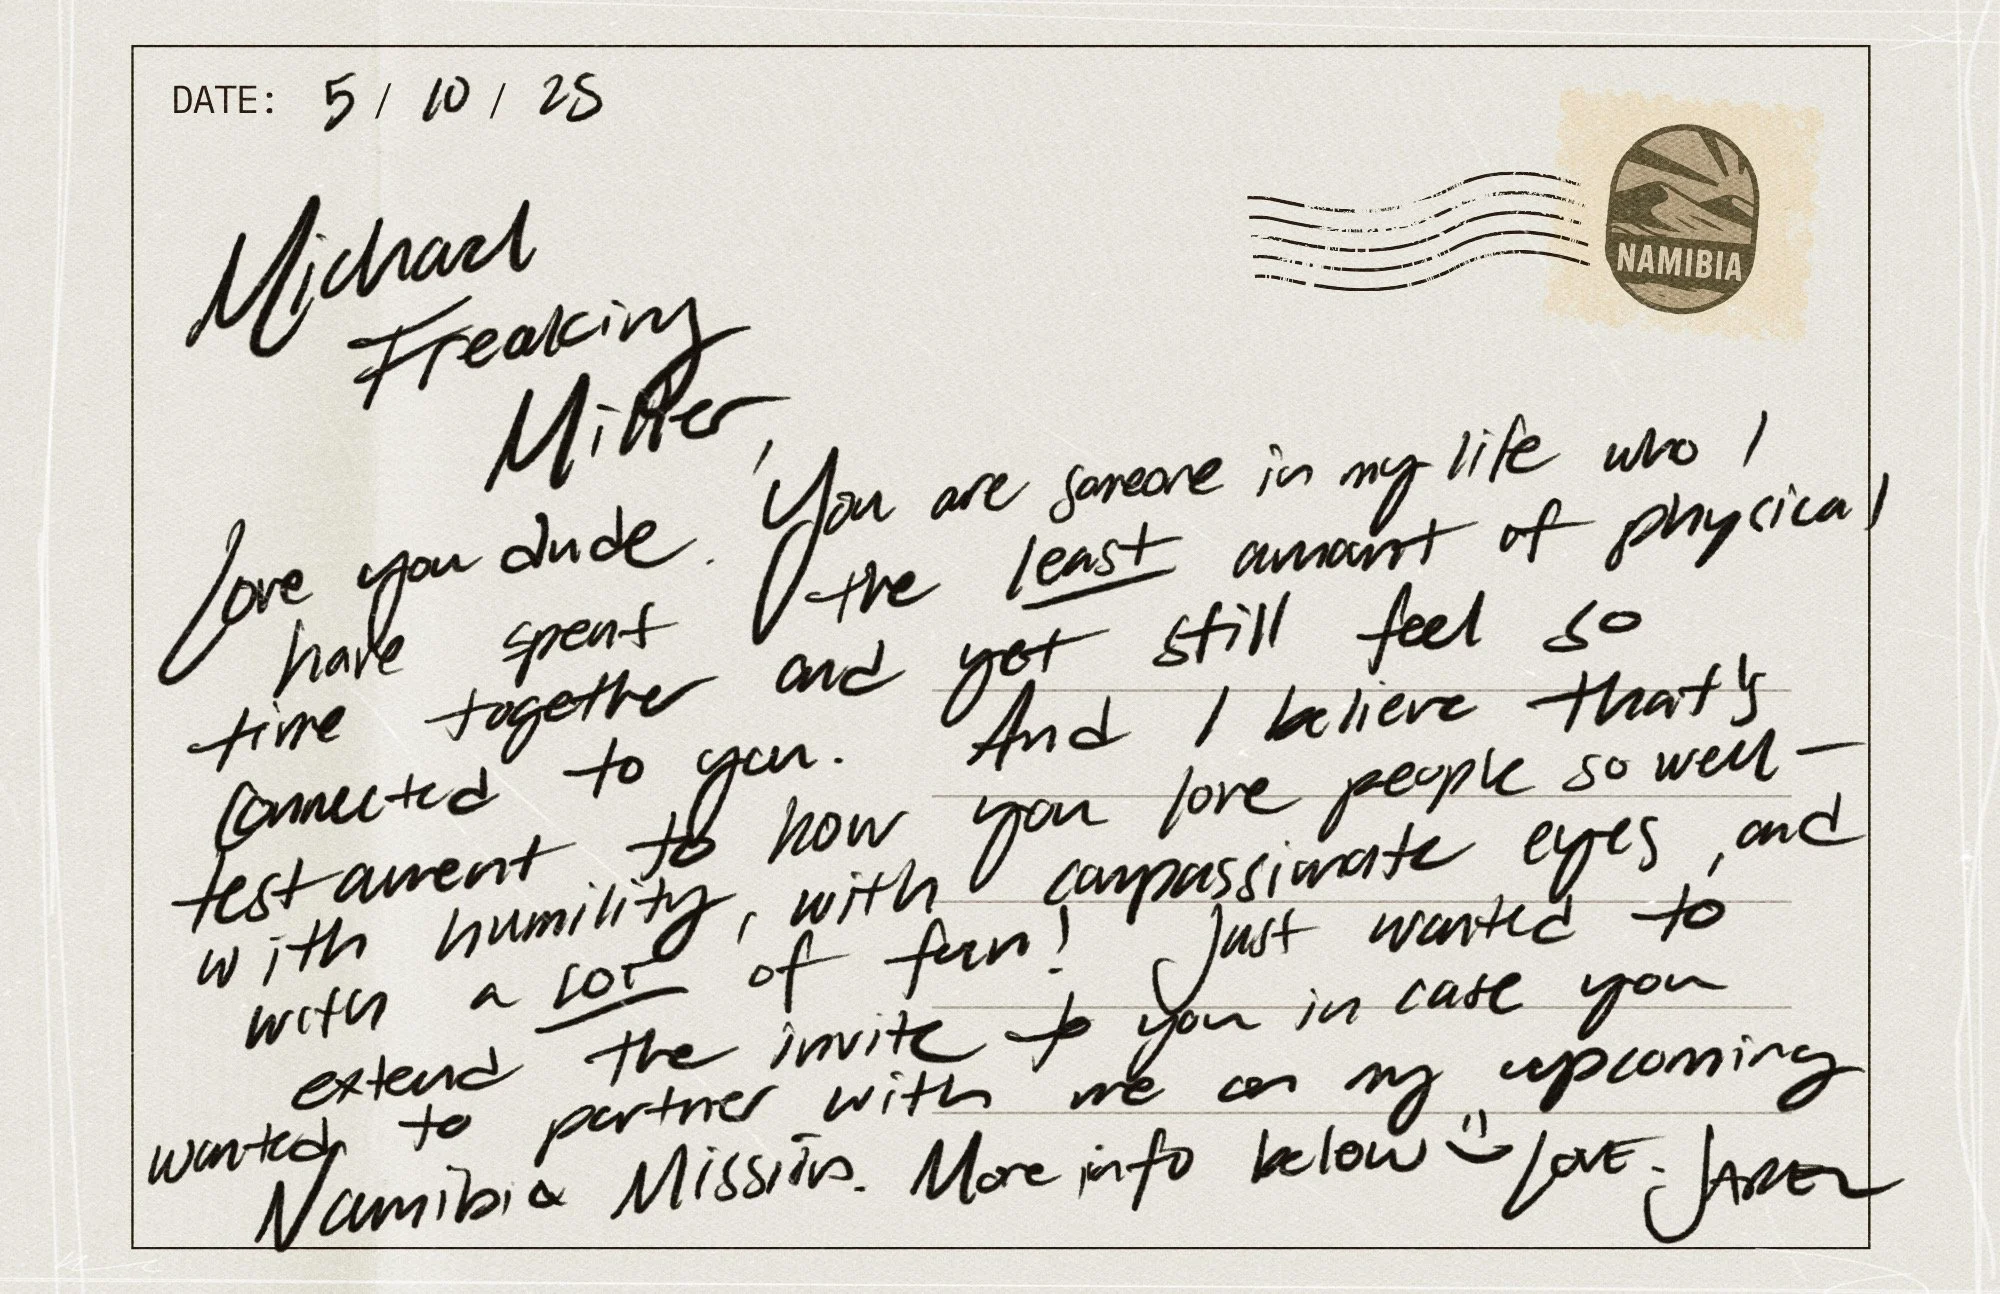 DATE: 5 / 10 / 25
NAMIBIA
Michael
Freaking
Miller,
Love you dude. You are someone in my life who I
have spent the least amount of physical
time together and yet still feel so
connected to you. And I believe that's
testament to how you love people so well —
with humility, with compassionate eyes, and
with a LOT of fun! Just wanted to
extend the invite to you in case you
wanted to partner with me on my upcoming
Namibia Mission. More info below LOVE,